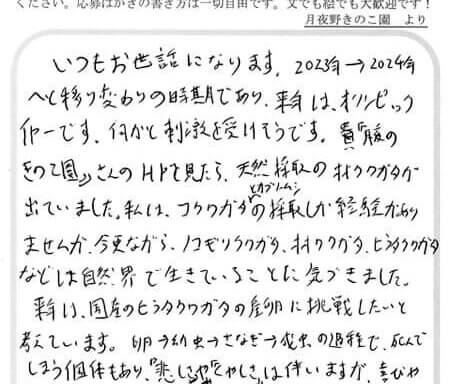 ください。応募はがきの書き方は一切自由です。文でも絵でも大歓迎です！
月夜野きのこ園　より
いつもお世話になります。2023年→2024年
へと移り変わりの時期であり、来年は、オリンピック
イヤーです。何かと刺激を受けそうです。貴殿の
きのこ園さんのHPを見たら、天然採取のオオクワガタが
出ていました。私は、コクワガタ とカブトムシ の採取しか経験があり
ませんが、今更ながら、ノコギリクワガタ、オオクワガタ、ヒラタクワガタ
などは自然界で生きていることに気づきました。
来年は、国産のヒラタクワガタの産卵に挑戦したいと
考えています。卵→幼虫→さなぎ→成虫の過程で、死んで
しまう個体もあり、"悲しさ" は伴いますが、喜びや